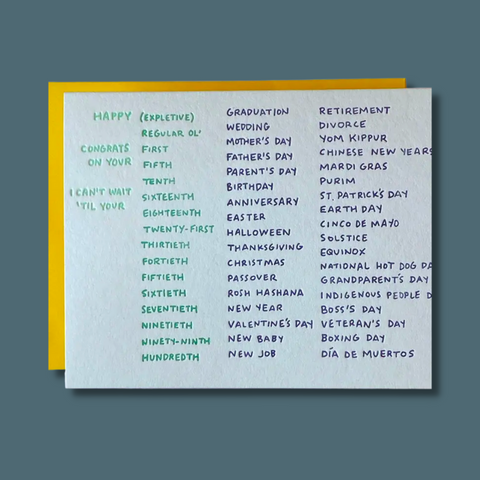 HAPPY
CONGRATS
ON YOUR
I CAN'T WAIT
'TIL YOUR
(EXPLETIVE)
REGULAR OL'
FIRST
FIFTH
TENTH
SIXTEENTH
EIGHTEENTH
TWENTY-FIRST
THIRTIETH
FORTIETH
FIFTIETH
SIXTIETH
SEVENTIETH
NINETIETH
NINETY-NINTH
HUNDREDTH
GRADUATION
WEDDING
MOTHER'S DAY
FATHER'S DAY
PARENT'S DAY
BIRTHDAY
ANNIVERSARY
EASTER
HALLOWEEN
THANKSGIVING
CHRISTMAS
PASSOVER
ROSH HASHANA
NEW YEAR
VALENTINE'S DAY
NEW BABY
NEW JOB
RETIREMENT
DIVORCE
YOM KIPPUR
CHINESE NEW YEARS
MARDI GRAS
PURIM
ST. PATRICK'S DAY
EARTH DAY
CINCO DE MAYO
SOLSTICE
EQUINOX
NATIONAL HOT DOG DA
GRANDPARENT'S DAY
INDIGENOUS PEOPLE D
BOSS'S DAY
VETERAN'S DAY
BOXING DAY
DÍA DE MUERTOS